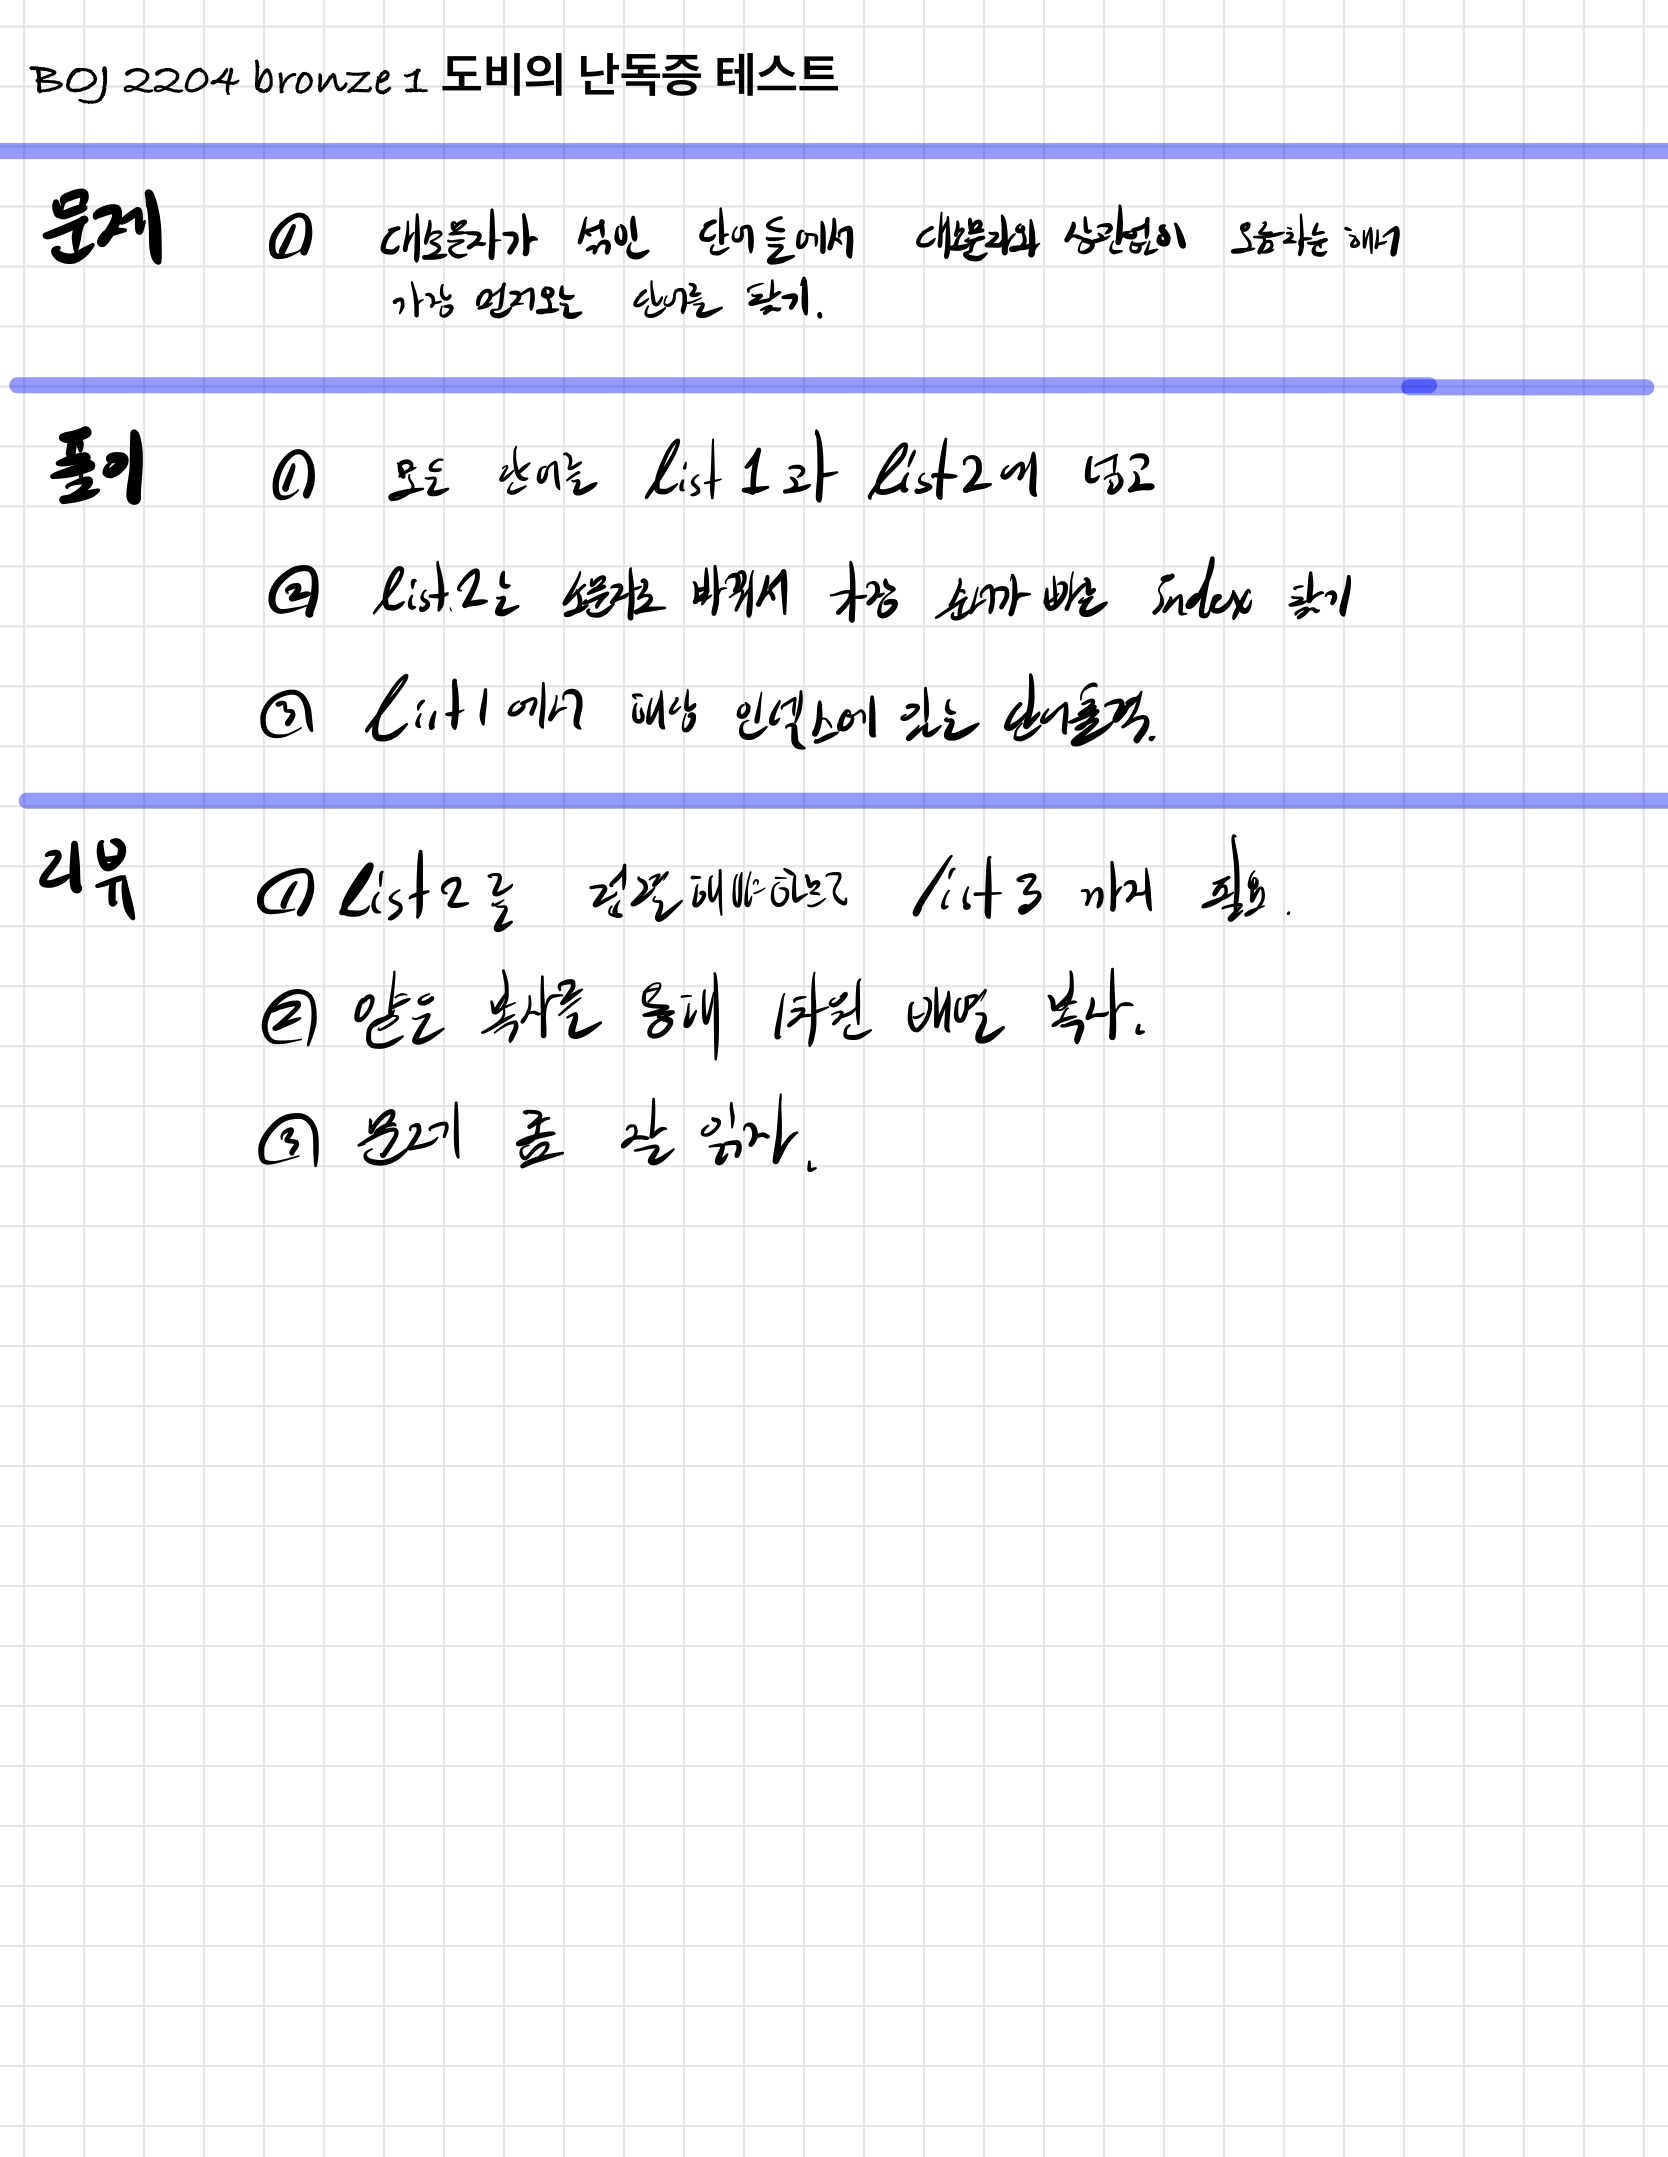 BOJ 2204 bronze 1 도비의 난독증 테스트
문제 ① 대소문자가 섞인 단어들에서 대소문자와 상관없이 오름차순 해서
가장 먼저오는 단어를 찾기.
풀이 ① 모든 단어를 list 1과 list2에 넣고
② list2는 소문자로 바꿔서 가장 순서가 빠른 index 찾기
③ list1에서 해당 인덱스에 있는 단어출력.
리뷰 ① list2를 정렬해야하므로 list3 까지 필요.
② 얕은 복사를 통해 1차원 배열 복사.
③ 문제 좀 잘 읽자.